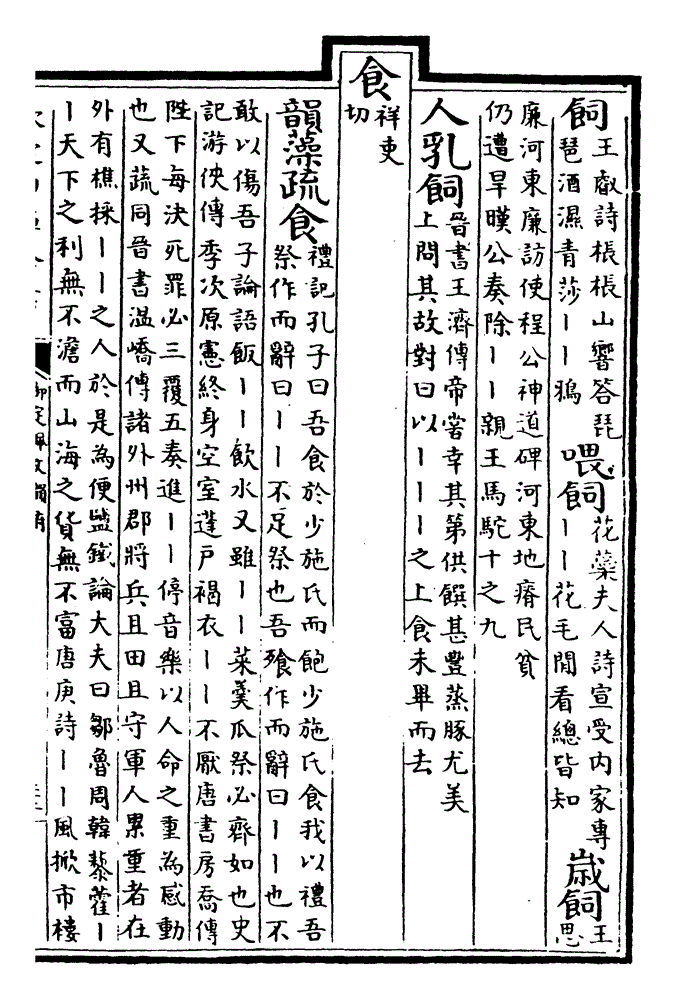 飼
王
詩棖棖山響答琵
琶酒濕青莎丨丨鴉
喂飼
花蘂夫人詩宣受内家專
丨丨花毛閒看總皆知
歳飼
王
思
廉河東廉訪使程公神道碑河東地瘠民貧
仍遭旱暵公奏除丨丨親王馬駝十之九
人乳飼
晉書王濟傳帝嘗幸其第供饌甚豐蒸豚尤美
上問其故對曰以丨丨丨之上食未畢而去
食
祥吏
切
韻藻疏食
禮記孔子曰吾食於少施氏而飽少施氏食我以禮吾
祭作而辭曰丨丨不足祭也吾飱作而辭曰丨丨也不
敢以傷吾子論語飯丨丨飲水又雖丨丨菜羮瓜祭必齊如也史
記游俠傳季次原憲終身空室蓬戸褐衣丨丨不厭唐書房喬傳
陛下每決死罪必三覆五奏進丨丨停音樂以人命之重為感動
也又蔬同晉書溫嶠傳諸外州郡將兵且田且守軍人累重者在
外有樵採丨丨之人於是為便鹽鐵論大夫曰鄒魯周韓藜藿丨
丨天下之利無不澹而山海之貨無不富唐庚詩丨丨風掀市樓